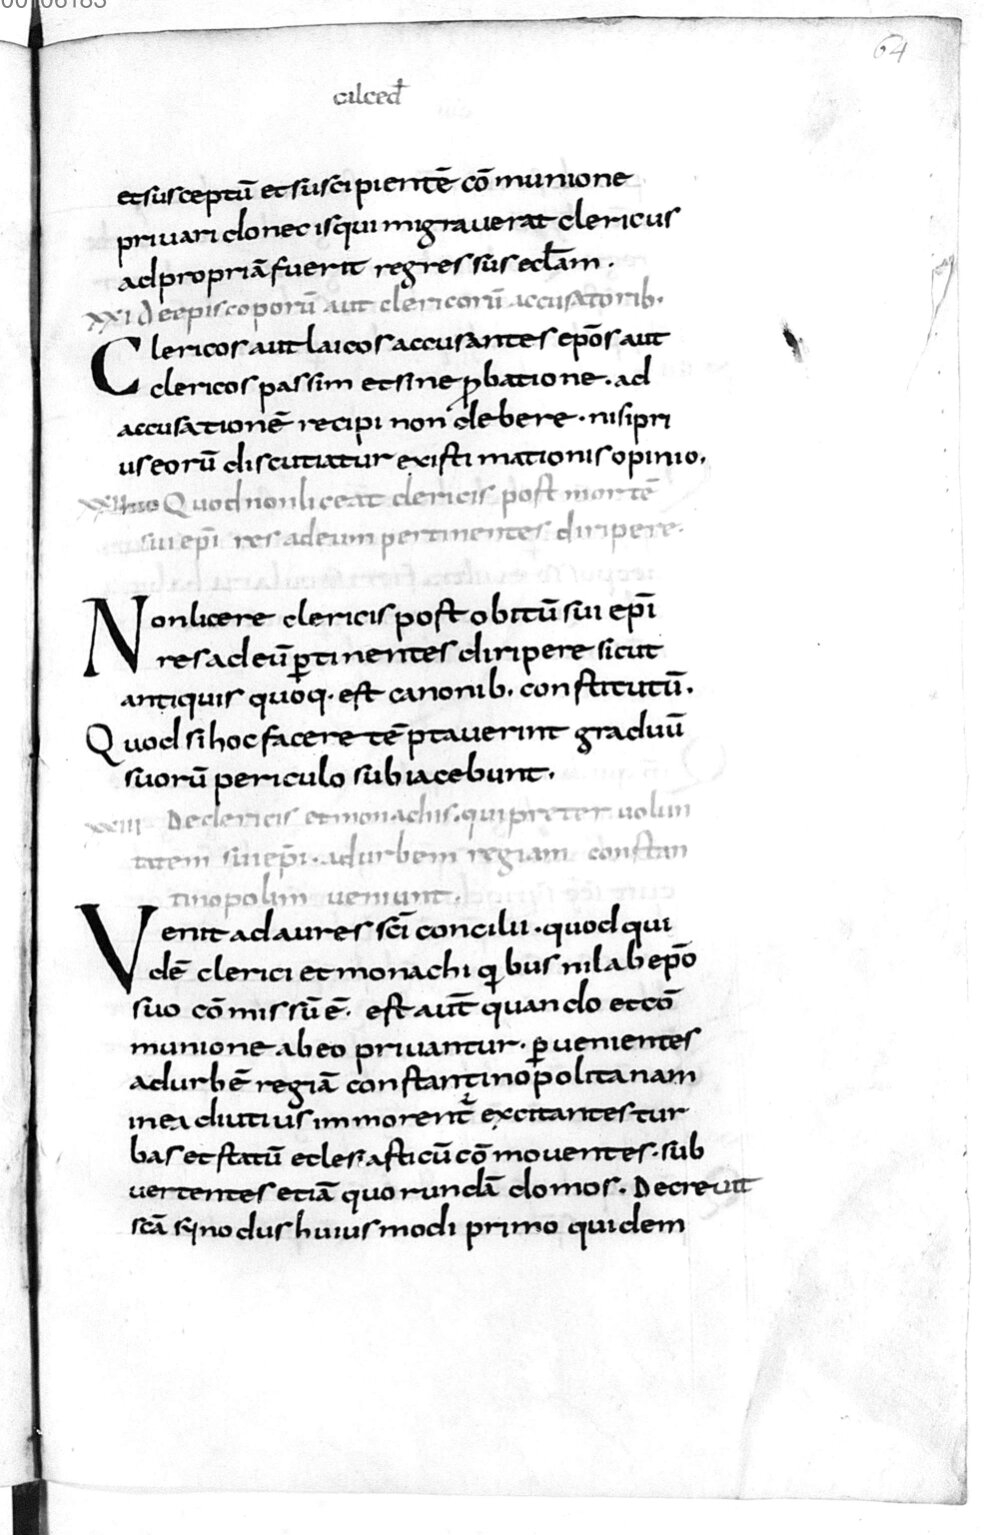 64
cilced̄
et susceptū et suscipientē cōmunione
privari donec is qui migraverat clericus
ad propriā fuerit regressus eclām.
XXI De episcoporū aut clericorū accusatorib.
Clericos aut laicos accusantes epōs aut
clericos passim et sine ꝓbatione. ad
accusationē recipi non debere. nisi pri
us eorū discutiatur existimationis opinio.
Quod non liceat clericis post mortē
sui epī res ad eum pertinentes diripere.
Non licere clericis post obitū sui epī
res ad eū ꝑtinentes diripere sicut
antiquis quoq. est canonib. constitutū.
Quod si hoc facere tēptaverint graduū
suorū periculo subiacebunt.
XXIII De clericis et monachis. qui preter volun
tatem sui epī. ad urbem regiam constan
tinopolim veniunt.
Venit ad aures scī concilii. quod qui
dē clerici et monachi qibus nil ab epō
suo cōmissū ē. est aut̄ quando et cō
munione ab eo privantur. ꝑvenientes
ad urbē regiā constantinopolitanam
in ea diutius immorent̄ excitantes tur
bas et statū eclesiasticū cōmoventes. sub
vertentes etiā quorundā domos. Decrevit
scā sinodus huiusmodi primo quidem